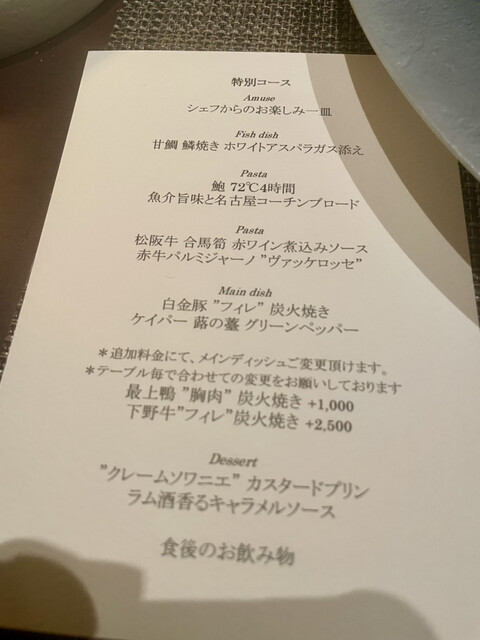 特別コース
Amuse
シェフからのお楽しみ一皿
Fish dish
甘鯛 鱗焼き ホワイトアスパラガス添え
Pasta
鮑 72℃4時間
魚介旨味と名古屋コーチンブロード
Pasta
松阪牛 合馬筍 赤ワイン煮込みソース
赤牛パルミジャーノ "ヴァッケロッセ"
Main dish
白金豚 "フィレ" 炭火焼き
ケイパー 蕗の薹 グリーンペッパー
＊追加料金にて、メインディッシュご変更頂けます。
＊テーブル毎で合わせての変更をお願いしております
最上鴨 "胸肉" 炭火焼き +1,000
下野牛"フィレ"炭火焼き +2,500
Dessert
"クレームソワニエ" カスタードプリン
ラム酒香るキャラメルソース
食後のお飲み物